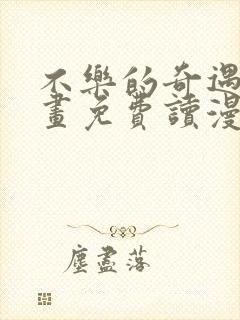 不樂的奇遇
畫免費讀漫
塵盡落